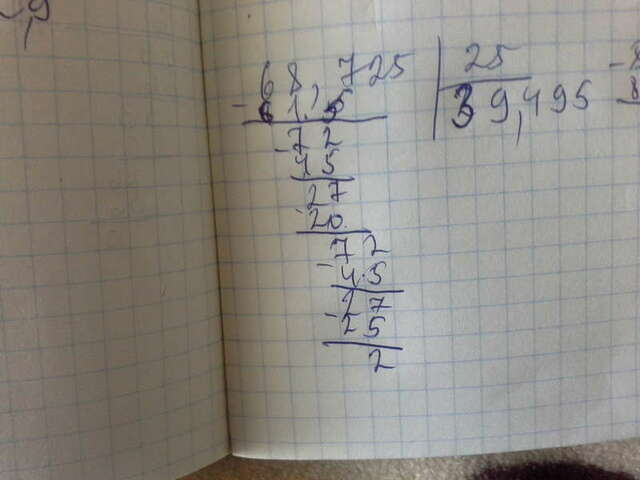 9
68,725 25
- 61,5 39,495
- 72
45
- 27
20
- 72
45
- 27
25
2